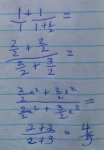 1/1 + 1/(1+1/2) =
(2/2 + 2/2)/(3/2 + 3/2) =
(2/2 x² + 2/2 x²)/(2/2 x² + 3/2 x²) =
(2+2)/(2+3) = 4/5